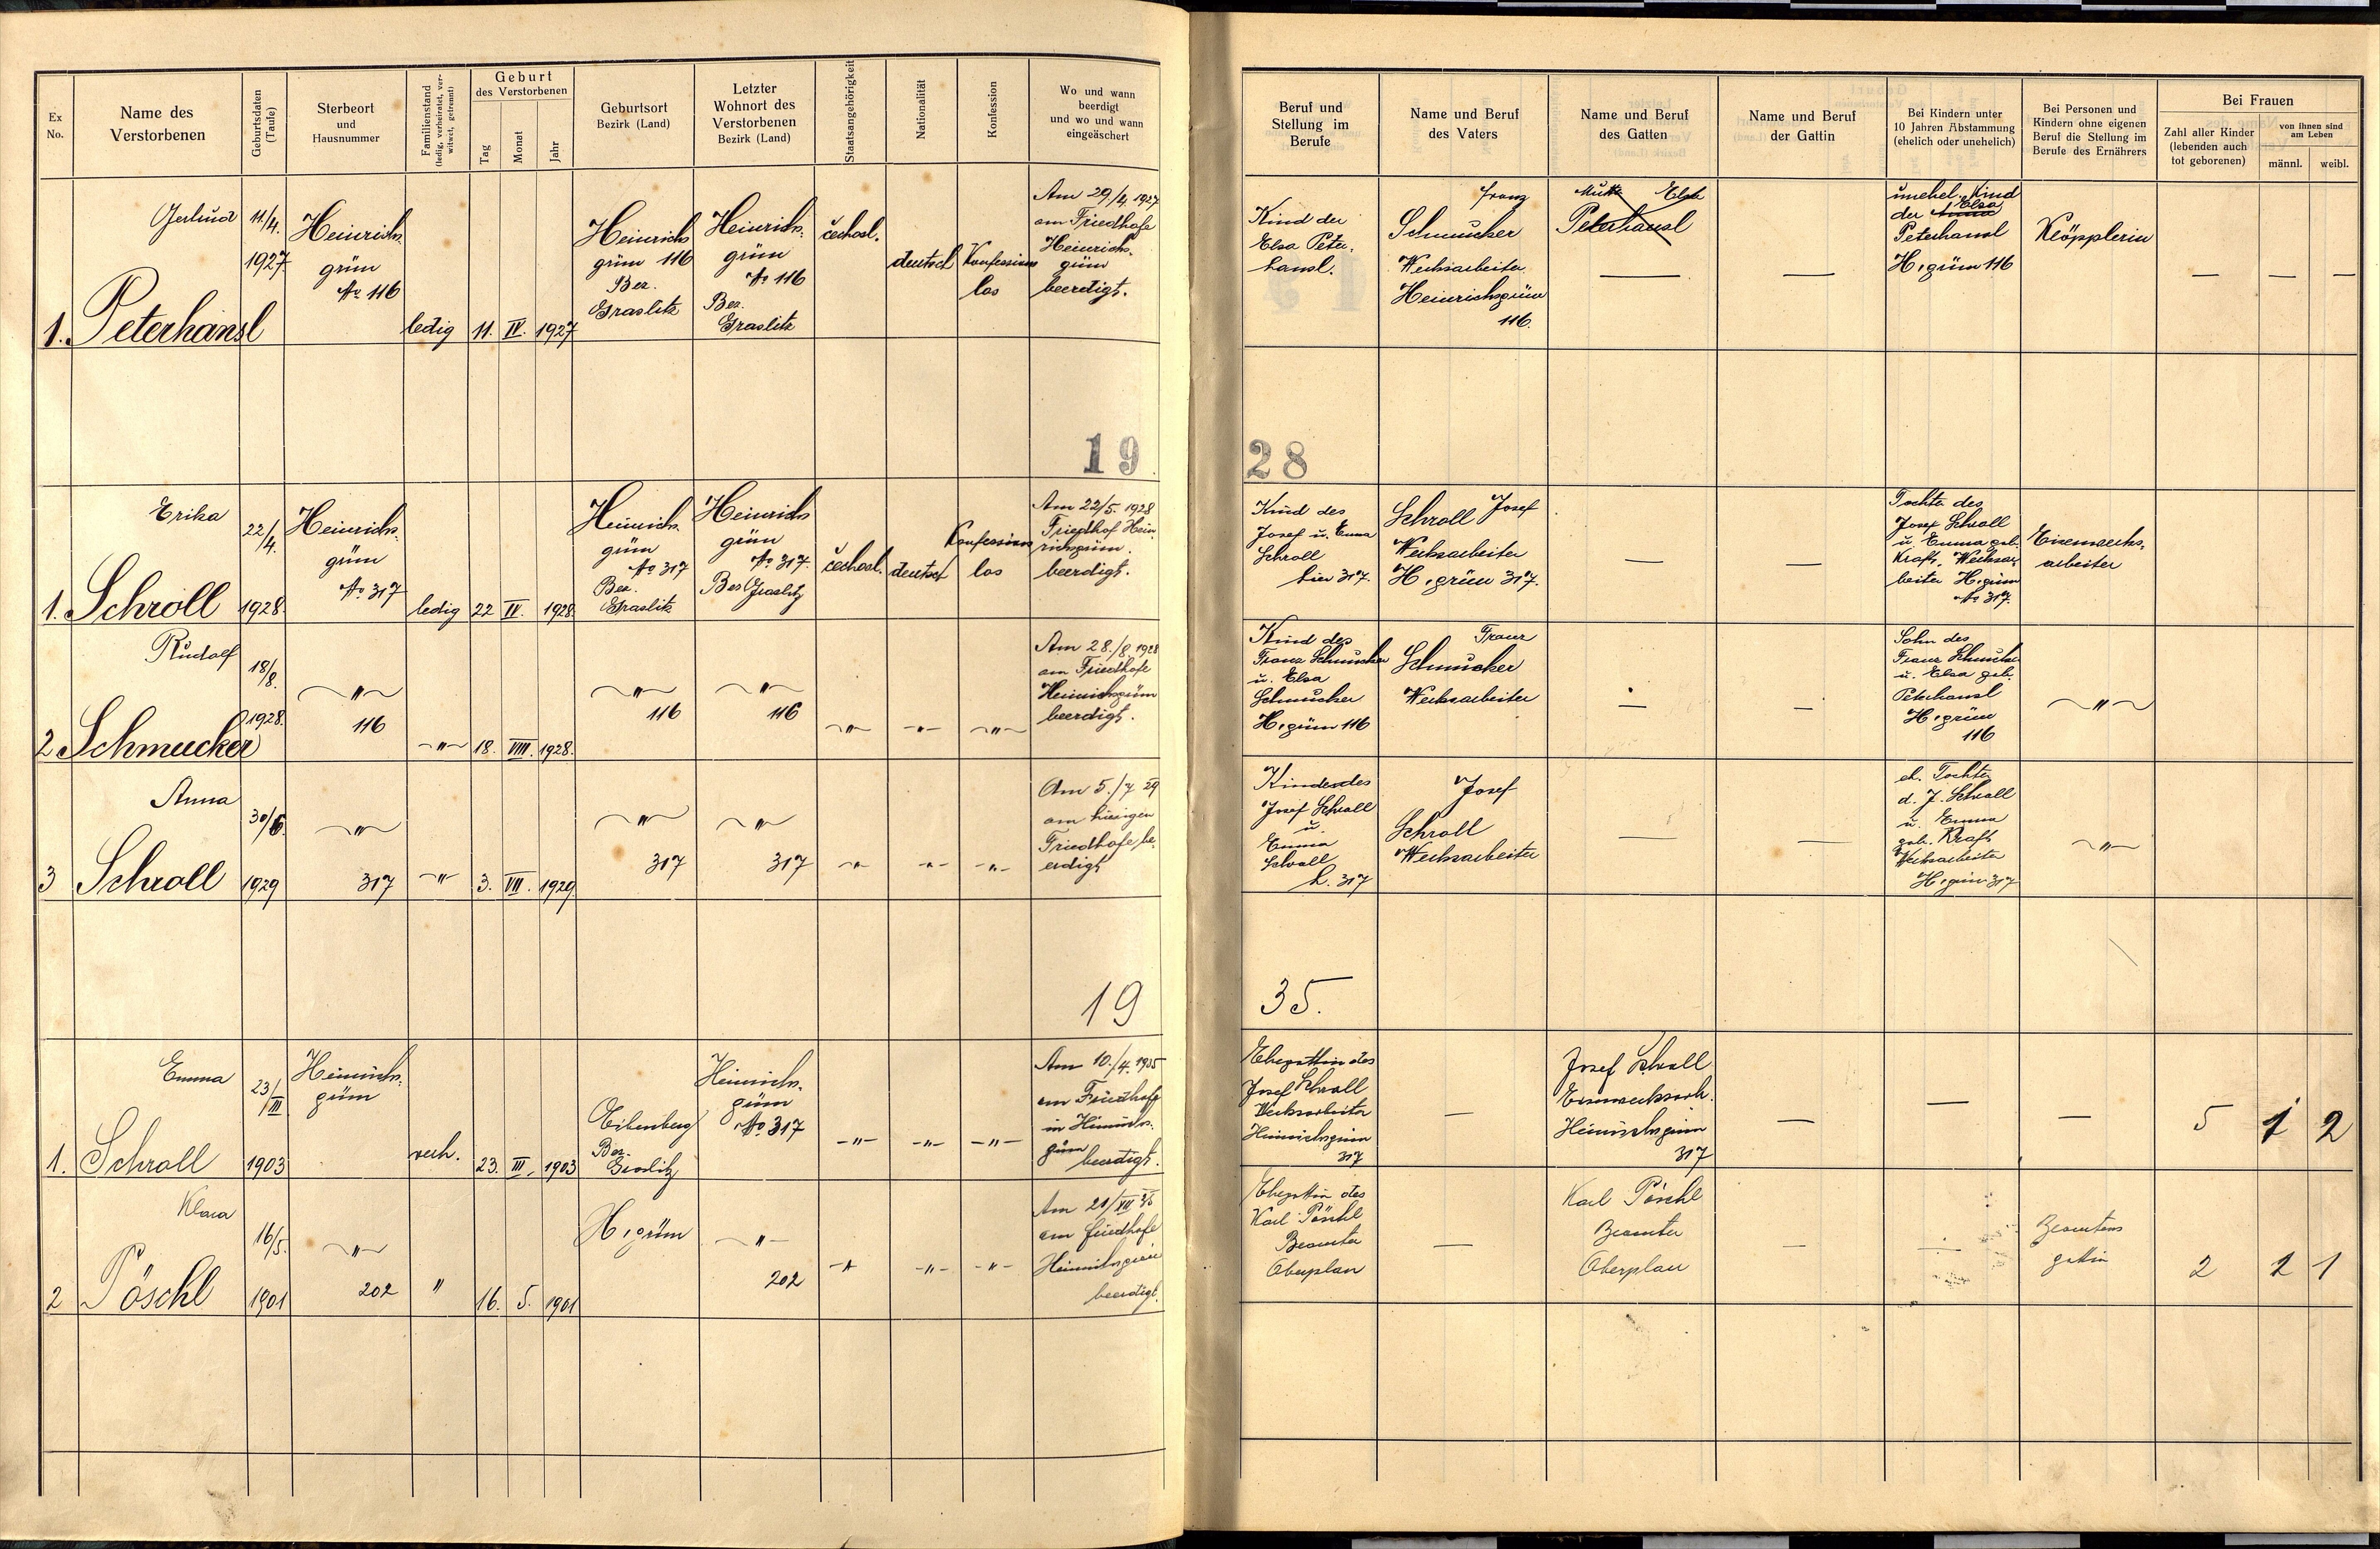 Ex No.
Name des Verstorbenen
Geburtsdaten (Taufe)
Sterbeort und Hausnummer
Familienstand (ledig, verheiratet, verwitwet, getrennt)
Geburt des Verstorbenen
Tag
Monat
Jahr
Geburtsort Bezirk (Land)
Letzter Wohnort des Verstorbenen Bezirk (Land)
Staatsangehörigkeit
Nationalität
Konfession
Wo und wann beerdigt und wo und wann eingeäschert
Beruf und Stellung im Berufe
Name und Beruf des Vaters
Name und Beruf des Gatten
Name und Beruf der Gattin
Bei Kindern unter 10 Jahren Abstammung (ehelich oder unehelich)
Bei Personen und Kindern ohne eigenen Beruf die Stellung im Berufe des Ernährers
Bei Frauen
Zahl aller Kinder (lebenden auch tot geborenen)
von ihnen sind am Leben
männl.
weibl.
1.
Peterhansl
11/4.
1927
Heinrichs-
grün
No 116
ledig
11.
IV.
1927
Heinrichs
grün 116
Bez.
Graslitz
Heinrichs-
grün
No 116
Bez.
Graslitz
čechosl.
deutsch
Konfessions
los
Am 29/4. 1927
am Friedhofe
Heinrichs-
grün
beerdigt.
Kind der
Elsa Peter-
hansl.
Franz
Schmucker
Werksarbeiter
Heinrichsgrün
116.
Elsa
Peterhansl
—
—
unehel. Kind
der Elsa
Peterhansl
H.grün 116
Klöpplerin
—
—
—
19
28
Erika
1. Schroll
22/4.
1928
Heinrichs-
grün
No 317
ledig
22
IV.
1928
Heinrichs-
grün
No 317
Bez.
Graslitz
Heinrichs
grün
No 317.
Bez Graslitz
čechosl.
deutsch
Konfessions
los
Am 22/5. 1928
Friedhof Hein-
richsgrün.
beerdigt.
Kind des
Josef u. Emma
Schroll
hier 317.
Schroll Josef
Werksarbeiter
H.grün 317.
—
—
Tochter des
Josef Schroll
u. Emma geb.
Kraft, Werksar-
beiter H.grün
No 317.
Eisenwerks-
arbeiter
Rudolf
2 Schmucker
18/8.
1928.
〃
116
〃
18.
VIII.
1928.
〃
116
〃
116
〃
〃
〃
Am 28./8. 1928
am Friedhofe
Heinrichsgrün
beerdigt.
Kind des
Franz Schmucker
u. Elsa
Schmucker
H.grün 116
Franz
Schmucker
Werksarbeiter
—
—
Sohn des
Franz Schmucker
u. Elsa geb.
Peterhansl
H.grün
116
〃
Anna
3 Schroll
30/6.
1929
〃
317
〃
3.
VII.
1929
〃
317
〃
317
〃
〃
〃
Am 5./7 29
am hiesigen
Friedhofe be-
erdigt
Josef Schroll
u.
Emma
Schroll
h. 317
Josef
Schroll
Werksarbeiter
—
—
eh. Tochter
d. J. Schroll
u. Emma
geb. Kraft
Werksarbeiter
H.grün 317
〃
19
35.
Emma
1. Schroll
23/III
1903
Heinrichs-
grün
verh.
23.
III.
1903
Eibenberg
Bez.
Graslitz
Heinrichs-
grün
No 317
〃
〃
〃
Am 10./4. 1935
am Friedhofe
in Heinrichs-
grün
beerdigt.
Ehegattin des
Josef Schroll
Werksarbeiter
Heinrichsgrün
317
—
Josef Schroll
Eisenwerksarb.
Heinrichsgrün
317
—
—
—
5
1
2
Klara
2 Pöschl
16/5.
1901
〃
202
〃
16.
5.
1901
H.grün
〃
202
〃
〃
〃
am Friedhofe
Heinrichsgrün
beerdigt.
Ehegattin des
Karl Pöschl
Beamter
Oberplan
—
Karl Pöschl
Beamter
Oberplan
—
—
Beamtens
gattin
2
1